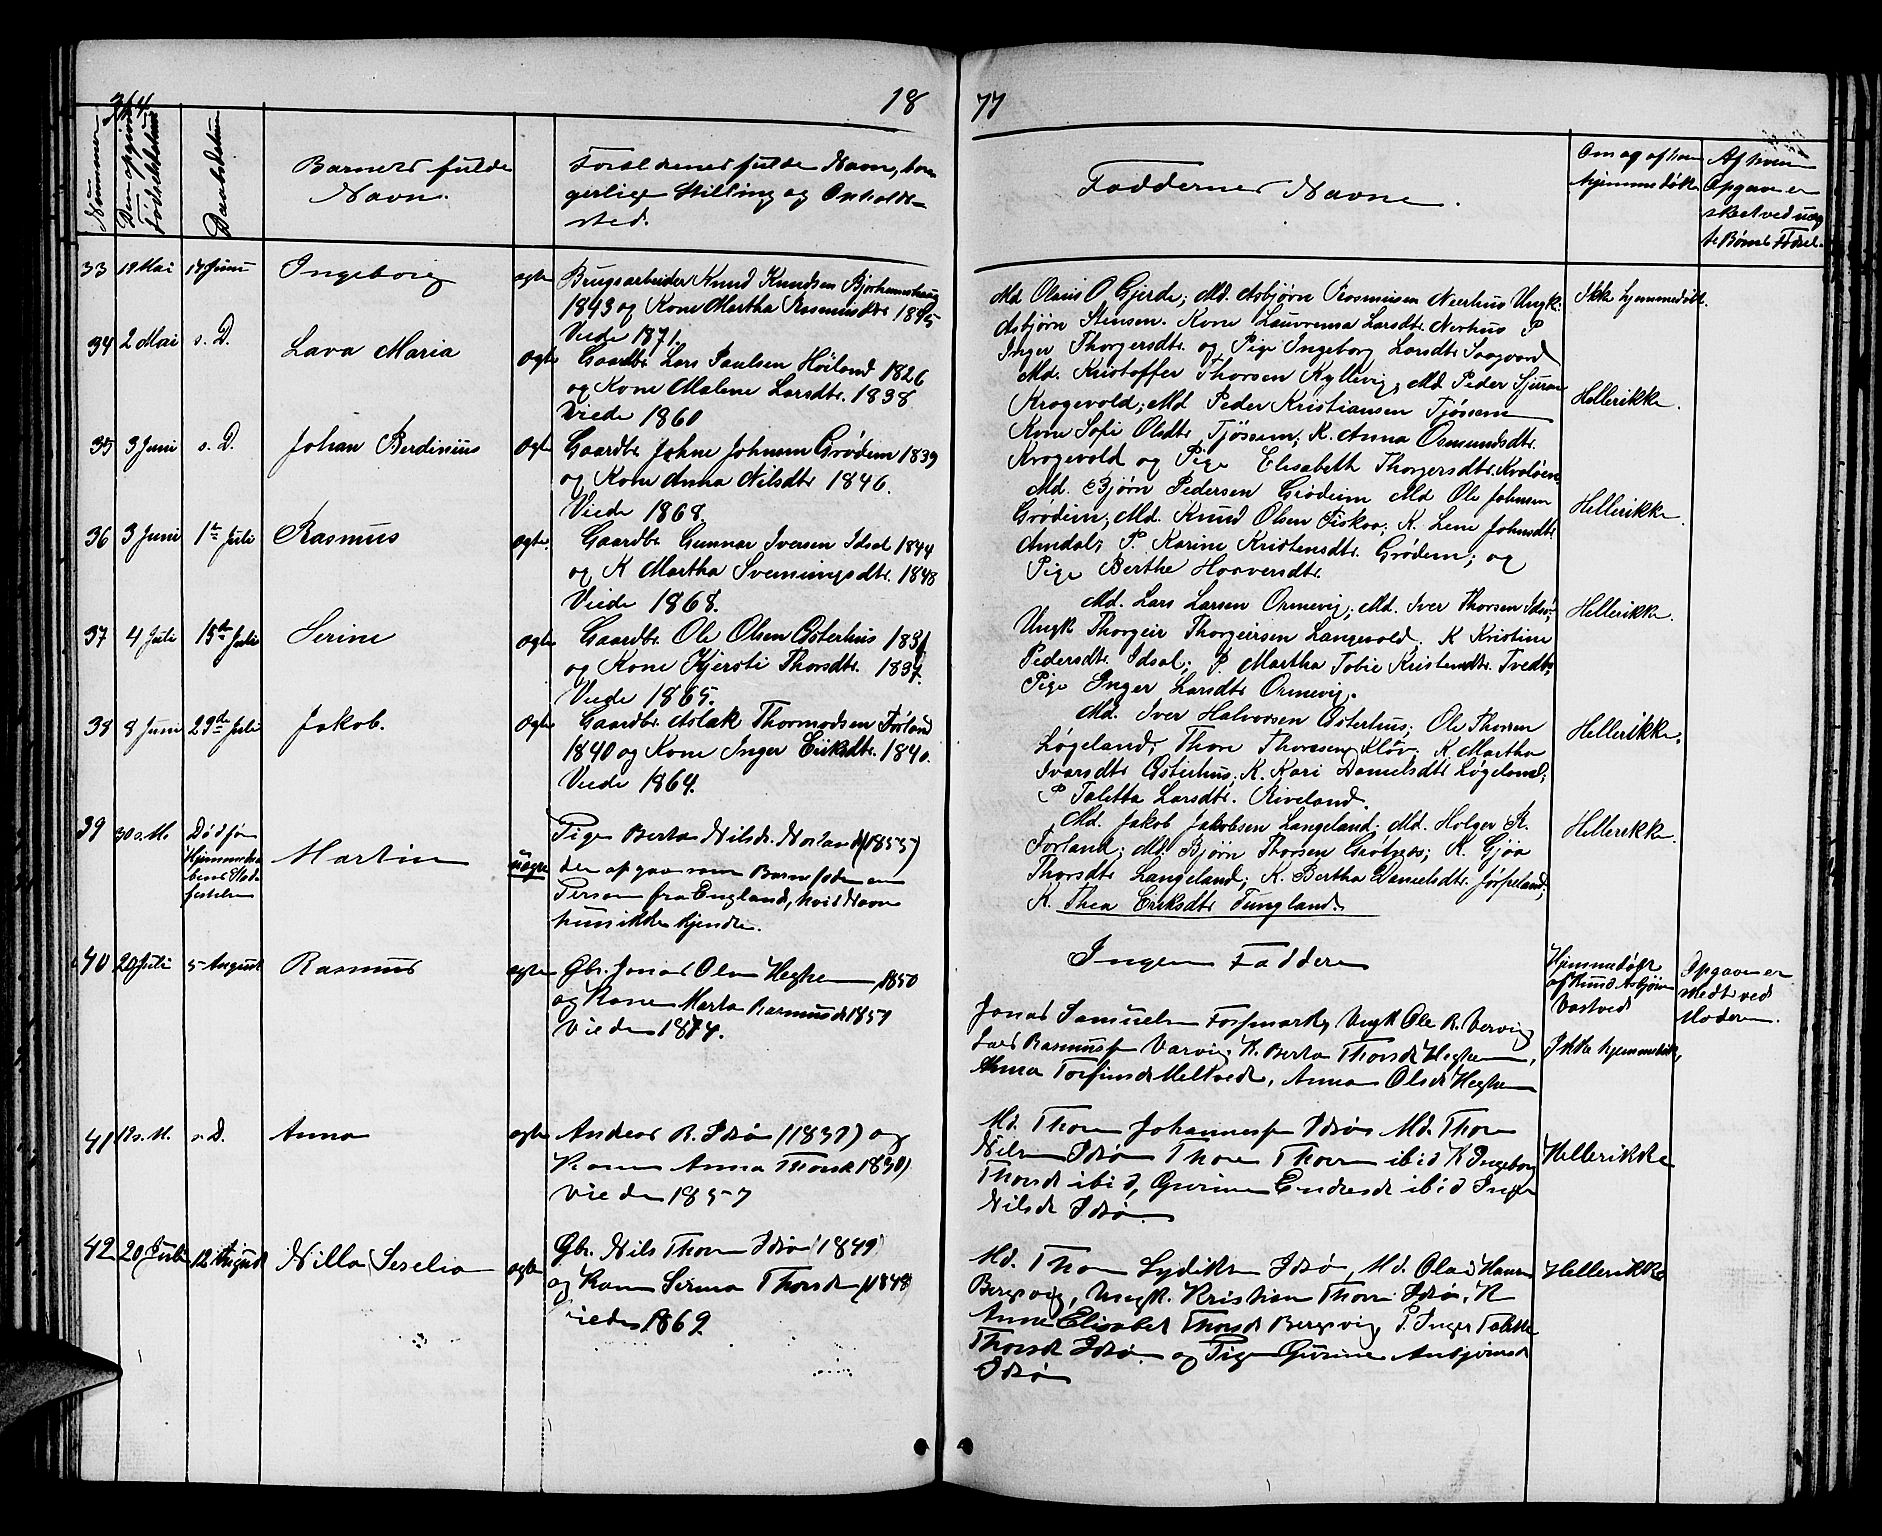 364.
18
77
Nummer
Den opgivne Fødselsdatum
Daabsdatum
Barnets fulde
Navn.
Forældrenes fulde Navn, bor-
gerlige Stilling og Opholds-
sted.
Faddernes Navne.
Om og af hvem
hjemmedøbt
Af hvem
Opgaven er
skeet ved uæg-
te Børns Fødsel.
33 19 Mai 17 Juni Ingeborg ægte
Brugsarbeider Knud Knudsen
1843 og Kone Martha Rasmusdtr 1845
Viede 1871.
Md Olaus O Gjerde; Md. Asbjørn Rasmusen Neerhus Ungk.
Asbjørn Stensen. Kone Laurensa Larsdtr. Nerhus P
Inger Thorgersdtr. og Pige Ingeborg Larsdtr
Ikke hjemmedøbt.
34 2 Mai s. D. Lava Maria ægte
Gaardbr Lars Paulsen Høiland 1826
og Kone Malene Larsdtr. 1838
Viede 1860
Md. Kristoffer Thorsen Kyllevig; Md Peder
Krogevold; Md Peder Kristiansen Tjøssem
Kone Sofi Olsdtr Tjössem; K. Anna Osmundsdtr.
Krogevold og Pige Elisabeth Thorgersdtr.
Hellerikke.
35 3 Juni s. D. Johan Berdinius ægte
Gaardbr Johne Johnsen Grødem 1839
og Kone Anna Nilsdtr 1846.
Viede 1868.
Md. Bjørn Pedersen Grødeim Md Ole Johnsen
Grødem; Md. Knud Olsen Fiskaa; K. Lene Johnsdtr
Amdal; P. Karine Kristensdtr. Grødem; og
Pige Berthe Haaversdtr.
Hellerikke.
36 3 Juni 1te Juli Rasmus ægte.
Gaardbr Gunnar Iversen Idsal 1844
og K Martha Svenungsdtr. 1848
Viede 1868.
Md. Lars Larsen Ormevig; Md. Iver Thorsen Idsø;
Ungk Thorgeir Thorgeirsen Langevold; K Kristine
Pedersdtr. Idsal; P. Martha Tobie Kristensdtr.
Pige Inger Larsdtr Ormevig.
Hellerikke.
37 4 Juli 15de Juli Serine ægte
Gaardbr. Ole Olsen Østerhus 1831
og Kone Kjersti Thorsdtr. 1837.
Viede 1865.
Md. Iver Halvorsen Østerhus; Ole Thorsen
Løgeland; Thore Thoresen Kløv; K. Martha
Ivarsdtr Østerhus; K. Kari Danielsdtr Løgeland;
P Taletta Larsdtr. Riveland.
Hellerikke.
38 8 Juni 29de Juli Jakob. ægte
Gaardbr. Aslak Thormodsen Førland
1840 og Kone Inger Eriksdtr. 1840.
Viede 1864.
Md. Jakob Jakobsen Langeland; Md. Holger K.
Førland; Md Bjørn Thorsen Grøtnes; K. Gjøa
Thorsdtr Langeland; K. Bertha Danielsdtr. Jørpeland;
K. Thea Eriksdtr Tungland.
Hellerikke.
39 30 s. M. Martin uægte
Pige Berta Nilsdr. (1855)
der opgav som Barnefader en
Person fra England, hvis Navn
hun ikke kjendte.
Ingen Faddere
Hjemmedøbt
af Knud Asbjørn
Vastvedt
Opgaven er
skedt ved
Moderen.
40 20 Juli 5 August Rasmus ægte
Gbr. Jonas Olsen Hegheim 1850
og Kone Marta Rasmusd 1857
Viede 1874.
Jonas Samuelsen Forsmark, Ungk Ole R. Vervig
Lars Rasmussen Varvig, K. Berta Thorsd Heghem,
Anna Torfinsd Meltvedt, Anna Olsd Heghem
Ikke hjemmedøbt,
41 12 s. M. s. D. Anna ægte
Andeas R. Idsø (1837) og
Kone Anna Thorsd 1830)
Viede 1857
Md. Thore Johannessen Idsø Md. Thore
Nilsen Idsø Thore Thoresen ibid K Ingeborg
Thorsd ibid, Gurine Endresd ibid Inger
Nilsd Idsø
Hellerikke
42 20 Juli 12 August Nilla Seselia ægte
Gbr. Nils Thorsen Idsø (1849)
og Kone Serina Thorsd (1848)
viede 1869.
Md. Thore Lydiksen Idsø, Md. Olai Hansen
Bergsvig, Ungk. Kristian Thorsen Idsø, K
Anne Elisabet Thorsd Bergsvig P. Inger Talette
Thorsd Idsø og Pige Gurine Asbjørnsd
Idsø
Hellerikke